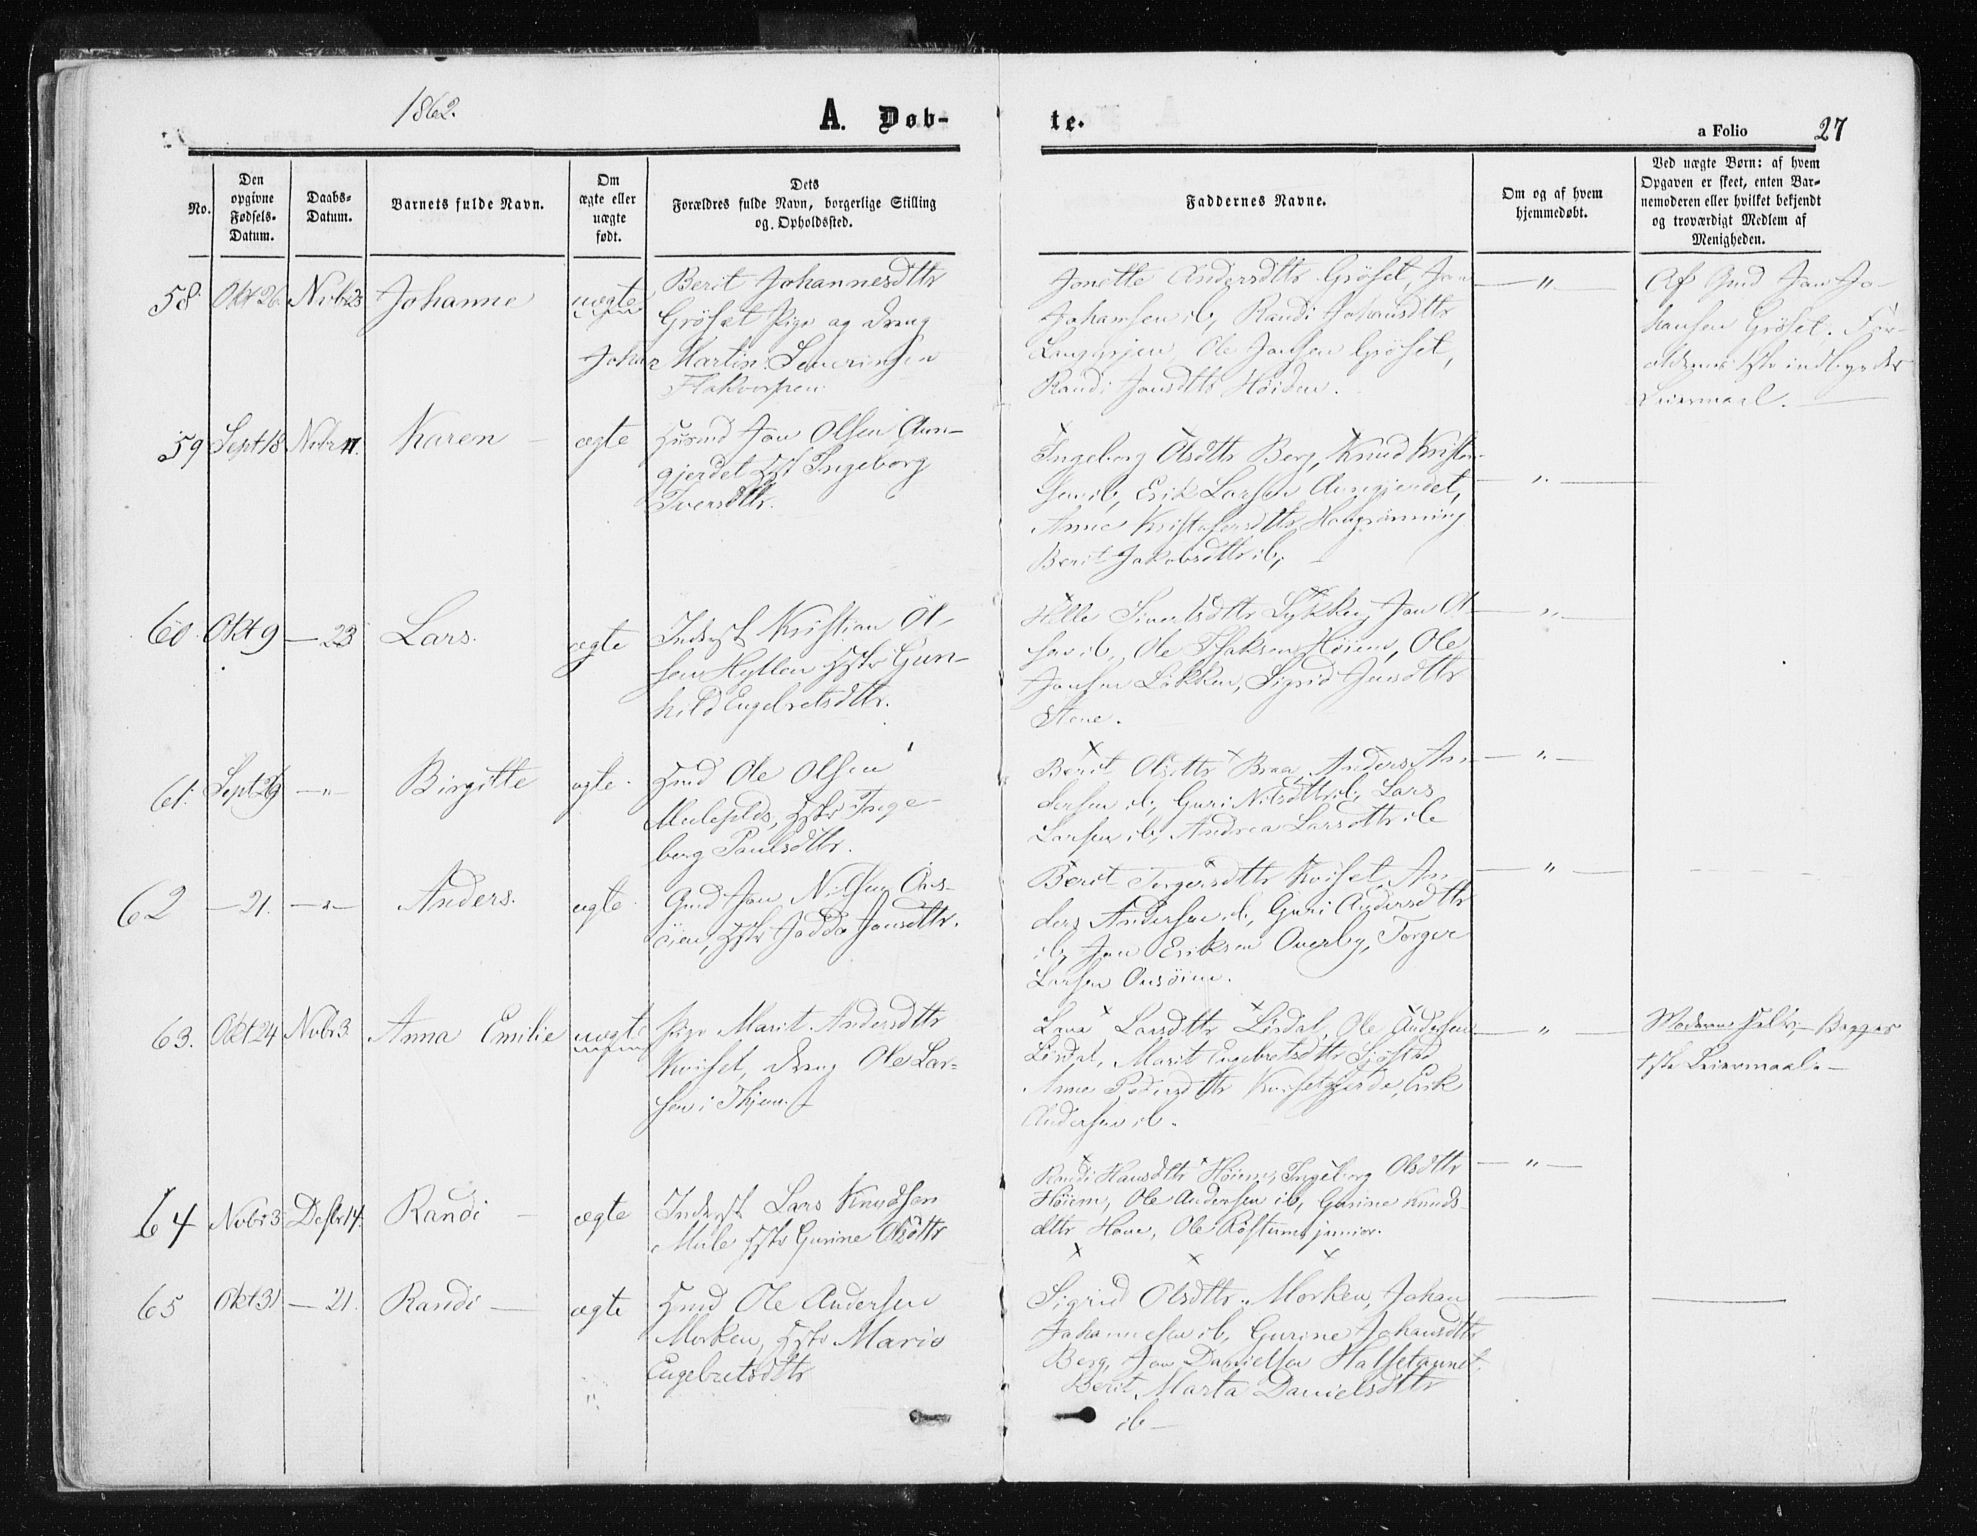 1862.
A. Døb-
te.
a Folio
27
No.
Den
opgivne
Fødsels-
Datum.
Daabs-
Datum.
Barnets fulde Navn.
Om
ægte eller
uægte
født.
Dets
Forældres fulde Navn, borgerlige Stilling
og Opholdssted.
Faddernes Navne.
Om og af hvem
hjemmedøbt.
Ved uægte Børn: af hvem
Opgaven er skeet, enten Bar-
nemoderen eller hvilket bekjendt
og troværdigt Medlem af
Menigheden.
58. Okt 26. Nvbr 23 Johanne uægte
Berit Johannesdttr
Gröset Pige og Dreng
Johan Martin Severinsen
Jonette Andersdttr Gröset, Jon
Johansen ib, Randi Johansdttr
Ole Jonsen Gröset,
Randi Jonsdttr Höiden.
— " —
Af Gmd Jon Jo-
hansen Gröset. For-
Leiermaal. —
59 Sept 18 Karen — ægte
Husmd Jon Olsen Aun-
gjerdet Hst Ingeborg
Iversdttr.
Ingeborg Olsdttr Berg, Knud Kristen-
sen ib, Erik Larsen Aungjerdet,
Anne Kristofersdttr Haugrönning
Berit Jakobsdttr ib,
— " —
60 Okt 9 — 23 Lars. ægte
Inderst Kristian Ol-
sen Hyllen Hstr Gun-
hild Engebretsdttr.
Sivertsdttr Lykken, Jon Ol-
sen ib, Ole Höiem, Ole
Jonsen Lökken, Sigrid Jonsdttr
Stene.
— " —
61. Sept 29 — " — Birgitte ægte.
Hmd Ole Olsen
Hstr Inge-
borg Paulsdttr.
Berit Olsdttr Braa, Anders An-
dersen ib, Guri Nilsdttr ib, Lars
Larsen ib, Andrea Larsdttr ib
— " —
62 — 21. — " — Anders. ægte
Gmd Jon Nilsen Ons-
öien, Hstr Jonsdttr.
Berit Torgersdttr Kviset, An-
ders Andersen ib, Guri Andersdttr
ib, Jon Eriksen Overby, Torger
Larsen Onsöien.
— " —
63. Okt 24 Nvbr 3 Anna Emilie uægte
Pige Marit Andersdttr
Kviset, Dreng Ole Lar-
sen i Thjem.
Larsdttr Lördal, Ole Andersen
Lördal, Marit Engebretsdttr Sjöstad
Anne Pedersdttr Kvisetgjerde, Erik
Andersen ib.
— " —
Moderen selv, Begges
1ste Leiermaal. —
64 Nvbr 3 Desbr 14. Randi — ægte
Inderst Lars Knudsen
Mule Hstr Gurine Olsdttr
Randi Hansdttr Höiem, Ingeborg Olsdttr
Höiem, Ole Andersen ib, Gurine Knuds-
dttr Hove, Ole Röstum junior.
— " —
65 Okt 31 — 21. Randi — ægte
Hmd Ole Andersen
Morken, Hstr Marit
Engebretsdttr
Sigrid Olsdttr. Morken, Johan
Johannesen ib, Gurine Johansdttr
Berg, Jon Danielsen Halsetaunet.
Berit Marta Danielsdttr
ib —